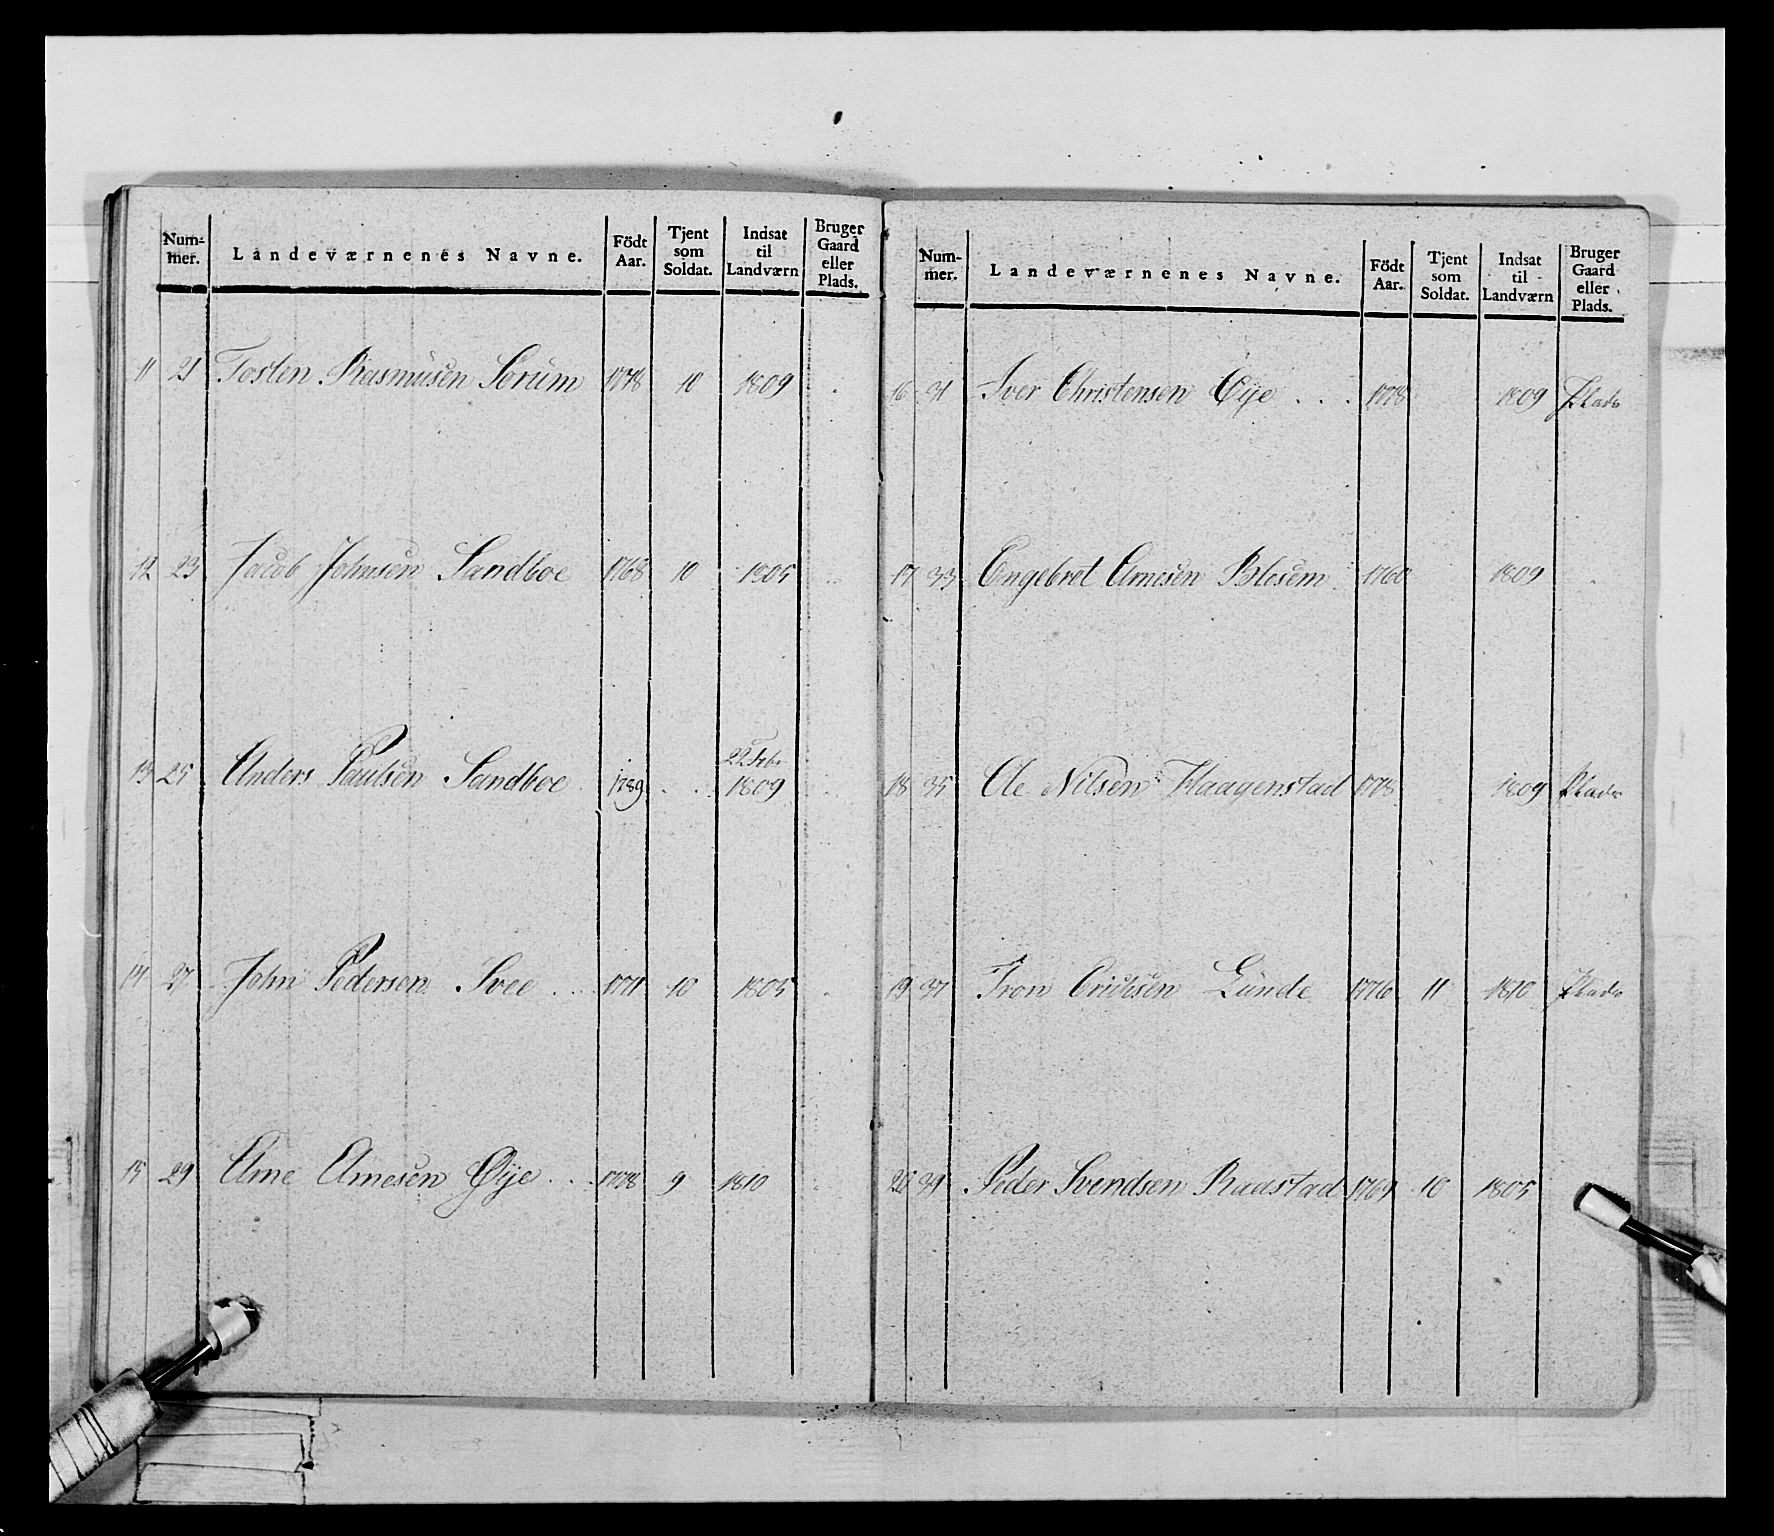 Num- mer. Landeværnenes Navne. Födt Aar. Tjent som Soldat. Indsat til Landværn Bruger Gaard eller Plads.
11 21 Tosten Rasmusen Sorum 1778 10 1809
12 23 Jacob Johnsen Sandboe 1768 10 1805
22 Febr
13 25 Anders Paulsen Sandboe 1789 1809
14 27 John Pedersen Svee 1771 10 1805
15 29 Arne Arnesen Øye 1778 9 1810
Num- mer. Landeværnenes Navne. Födt Aar. Tjent som Soldat. Indsat til Landværn Bruger Gaard eller Plads.
16 31 Iver Christensen Øye 1778 1809 Plads
17 33 Engebret Arnesen Blesem 1760 1809
18 35 Ole Nilsen Haagenstad 1778 1809 Plads
19 37 Tron Erichsen Lunde 1776 11 1810 Plads
20 39 Peder Svendsen Raastad 1769 10 1805